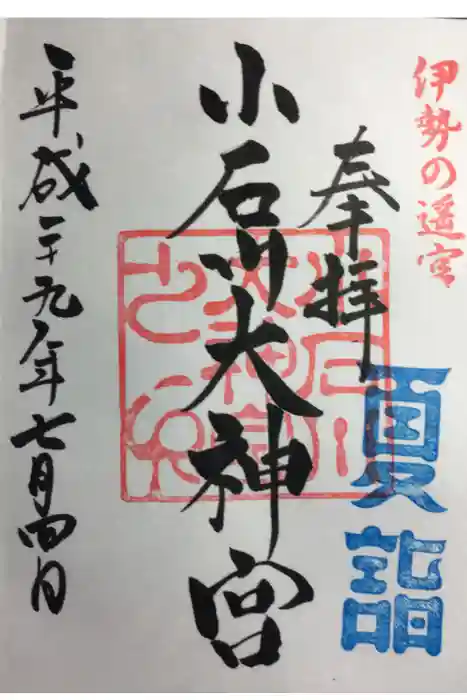 伊勢の遥宮
夏詣
奉拝
小石川大神宮
平成二十九年七月四日